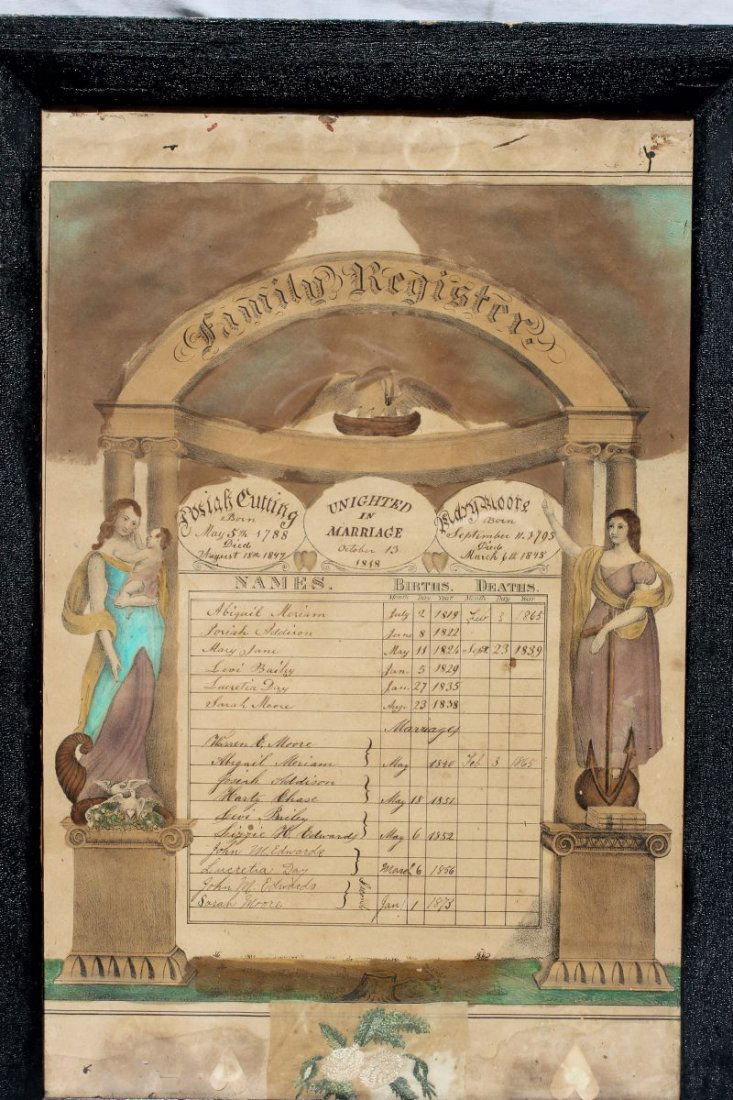 Family Register.
Josiah Cutting
Born
May 5th 1788
Died
August 18th 1847
UNIGHTED
IN
MARRIAGE
October 13
1818
Mary Moore
Born
September 11. 1795
Died
March 6th 1848
NAMES. BIRTHS. DEATHS.
Month Day Year Month Day Year
Abigail Meriam July 2 1819 Feb 3 1865
Josiah Addison June 8 1822
Mary Jane May 11 1824 Sept 23 1839
Levi Bailey Jan. 5 1829
Lucretia Day Jan. 27 1835
Sarah Moore Aug. 23 1838
Marriages
Warren E. Moore
Abigail Meriam May 1840 Feb 3 1865
Josiah Addison
Harty Chase May 18 1851
Levi Bailey
Lizzie H. Edwards May 6 1852
John M. Edwards
Lucretia Day March 6 1856
John M. Edwards
Sarah Moore Jan 1 1873